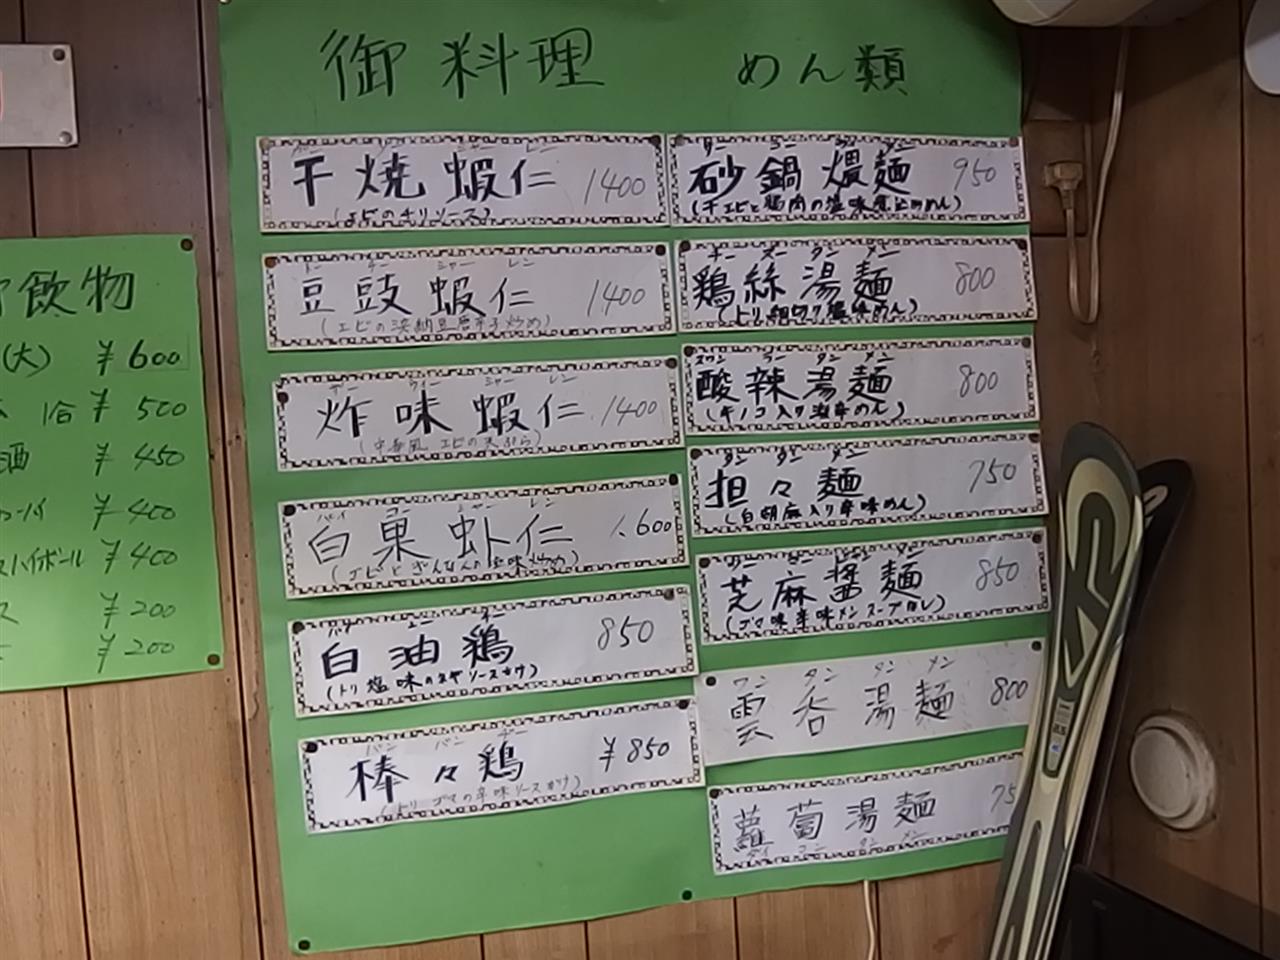 御料理
カン シャー レン
干焼蝦仁 1400
(エビのチリソース)
トー チー シャー レン
豆豉蝦仁 1400
(エビの浜納豆唐辛子炒め)
シャー レン
炸味蝦仁 1400
(中華風エビの天ぷら)
白菓虾仁 1.600
(エビとぎんなんの塩味炒め)
白油鶏 850
(トリ塩味のネギソースかけ)
バン バン ヂー
棒々鶏 ¥850
(トリ ゴマの辛味ソースかけ)
めん類
砂鍋煨麺 950
(干エビと鶏肉の塩味煮込めん)
チー スー タン メン
鶏絲湯麺 800
(トリ細切り塩味めん)
スワン ラー タン メン
酸辣湯麺 800
(キノコ入り酸辛めん)
タン タン メン
担々麺 750
(白胡麻入り辛味めん)
芝麻醤麺 850
(ゴマ味辛味メンスープなし)
ワン タン タン メン
雲呑湯麺 800
蘿蔔湯麺 75
ダイ コン タン メン
飲物
(大) ¥600
¥500
酒 ¥450
¥400
ハイボール ¥400
ス ¥200
¥200